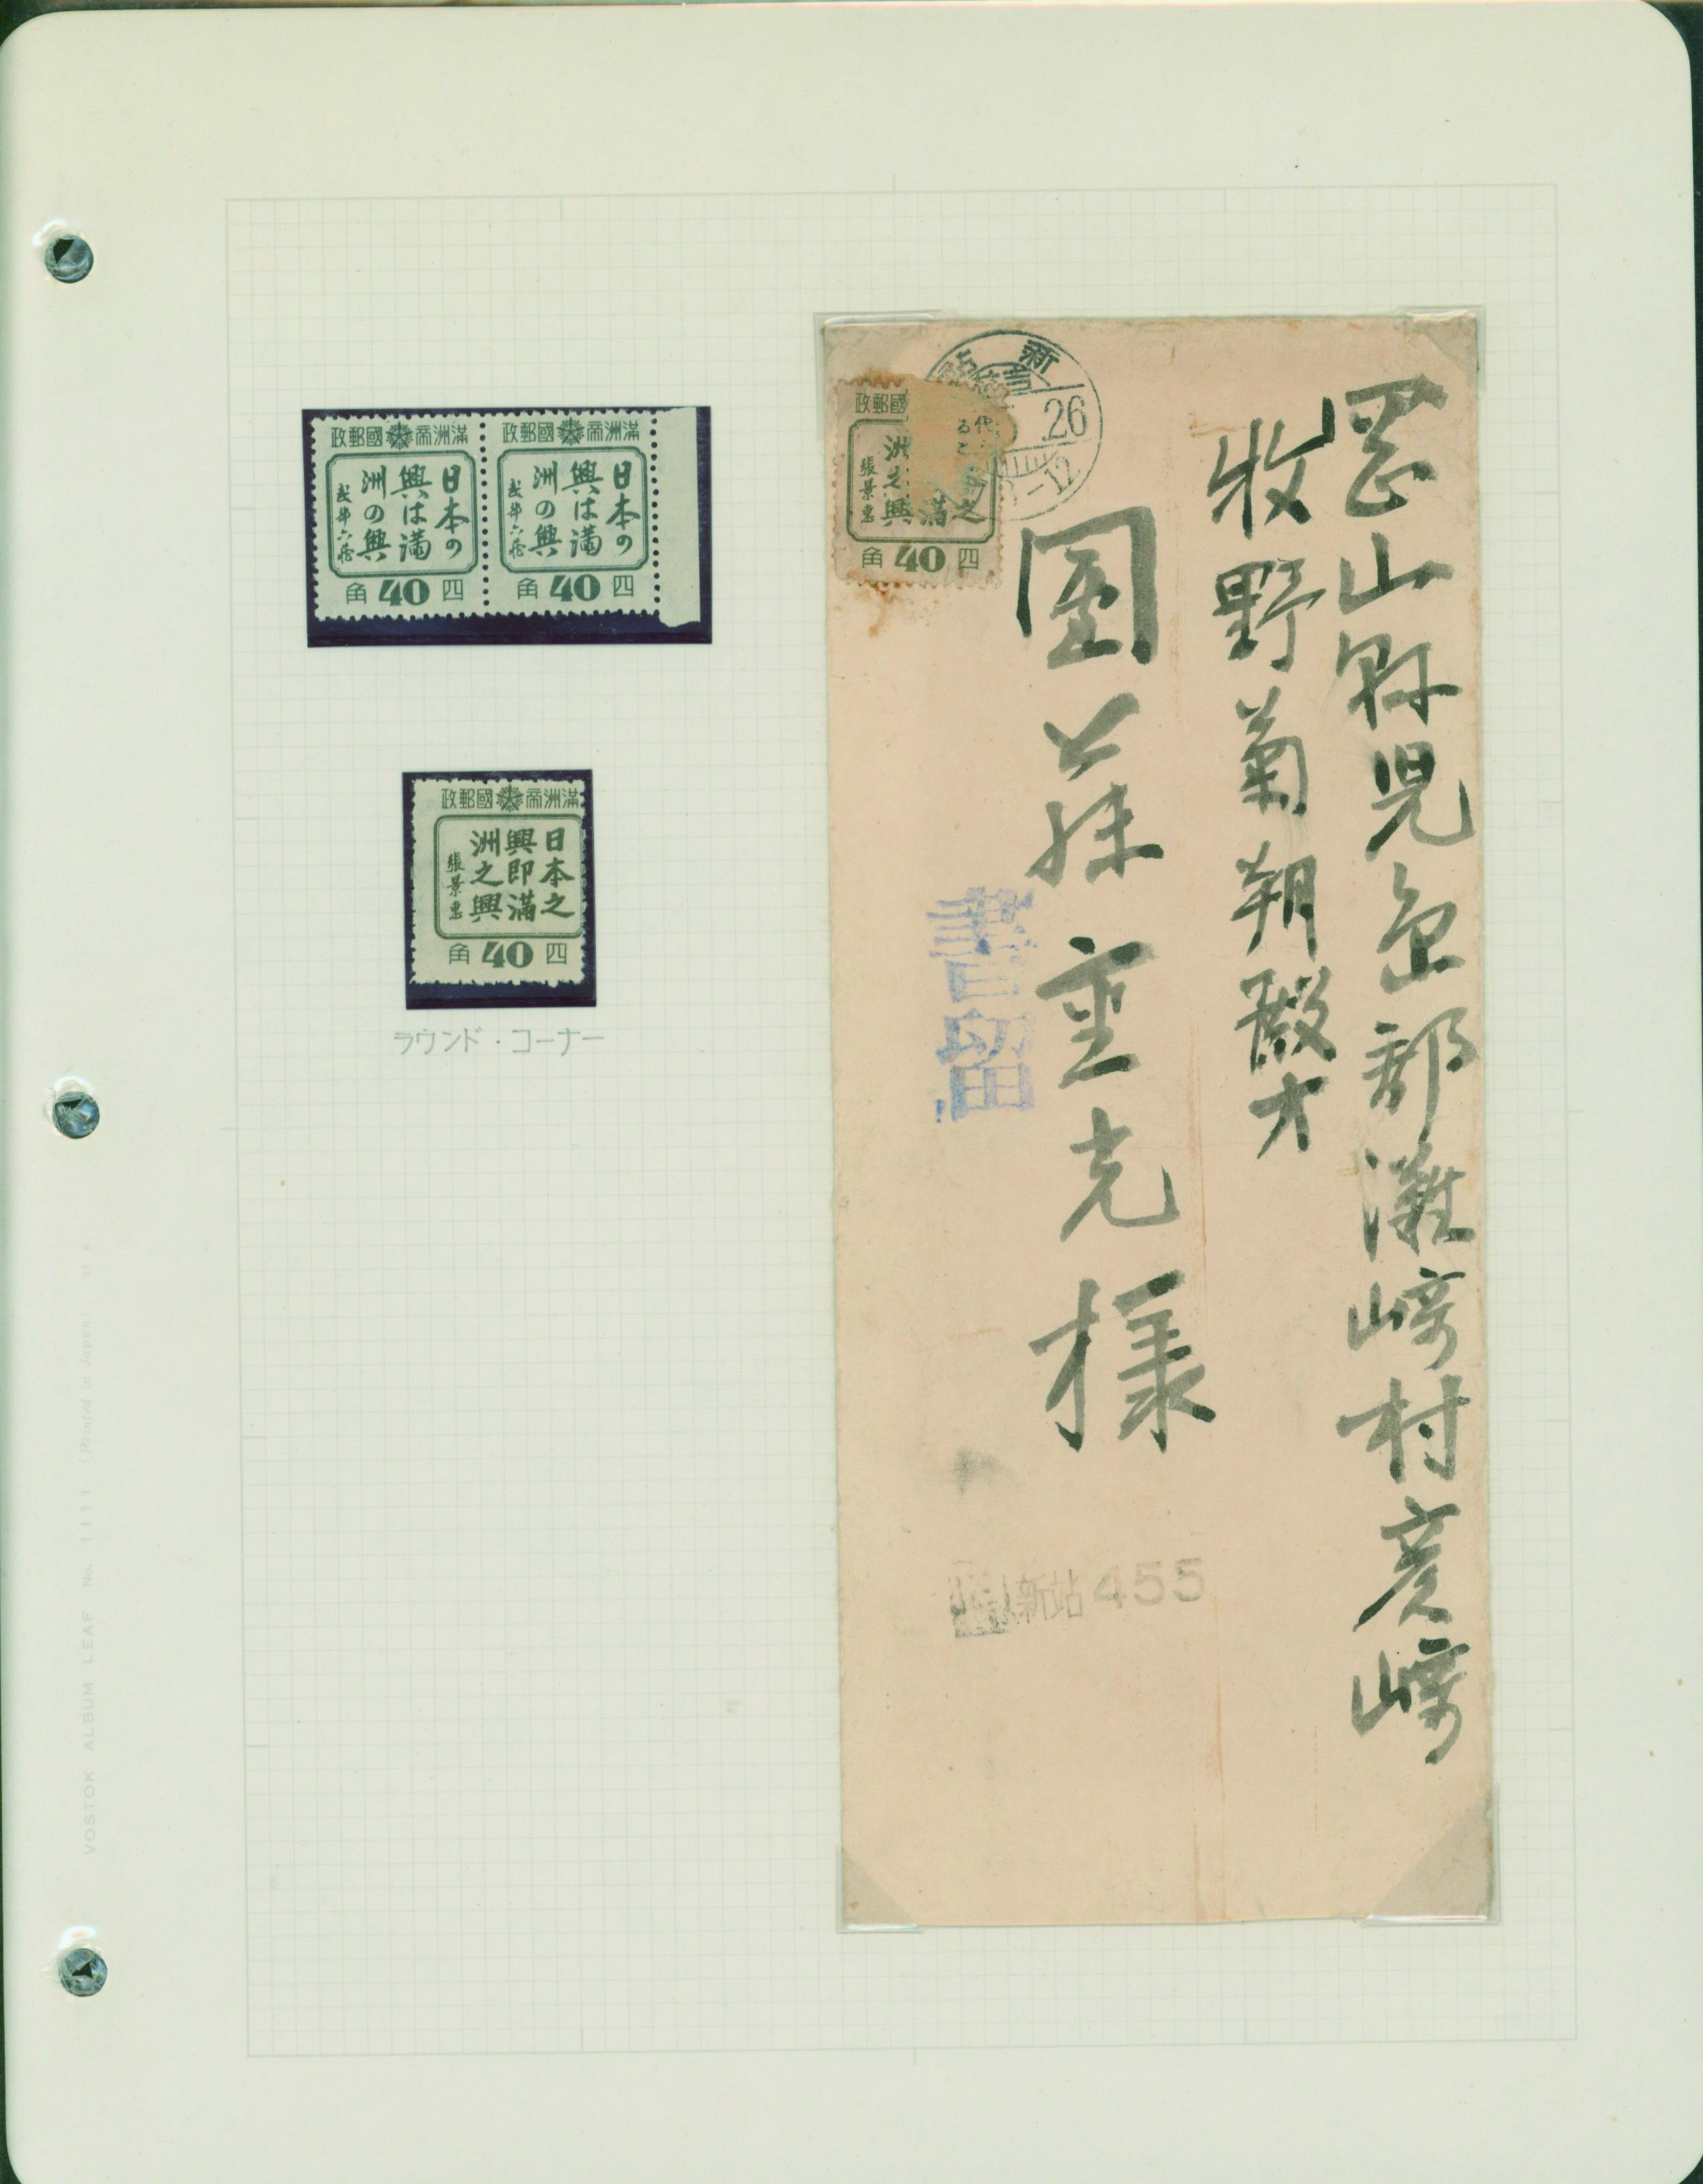 政郵國 帝洲滿
日本の
興は滿
洲の興
武部六藏
角 40 四
政郵國 帝洲滿
日本の
興は滿
洲の興
武部六藏
角 40 四
政郵國 帝洲滿
日本之
興即滿
洲之興
張景惠
角 40 四
ラウンド・コーナー
政郵國
之
滿
洲之興
張景惠
角 40 四
新
26
-12
岡山縣児島郡灘崎村彦崎
牧野菊朔殿方
重克様
書留
新站 455
VOSTOK ALBUM LEAF No. 1111 (Printed in Japan)